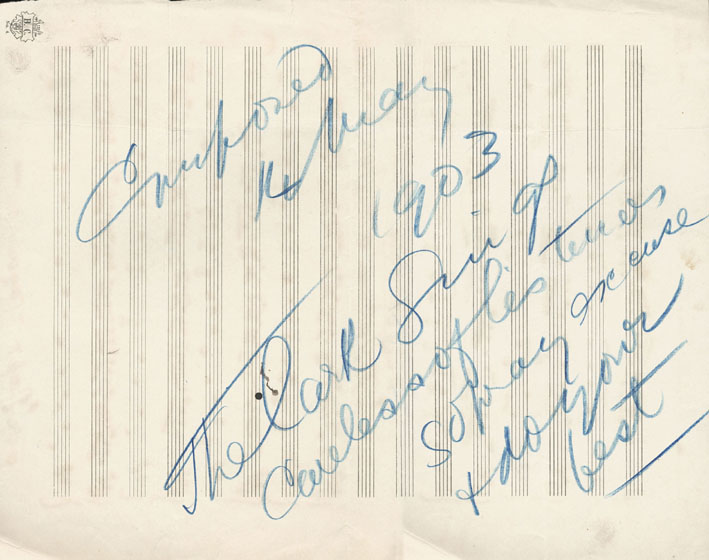 Composed
16 May
1903
The Lark Sings
Careless of listeners
So pray excuse
+ do your
best
B. C.